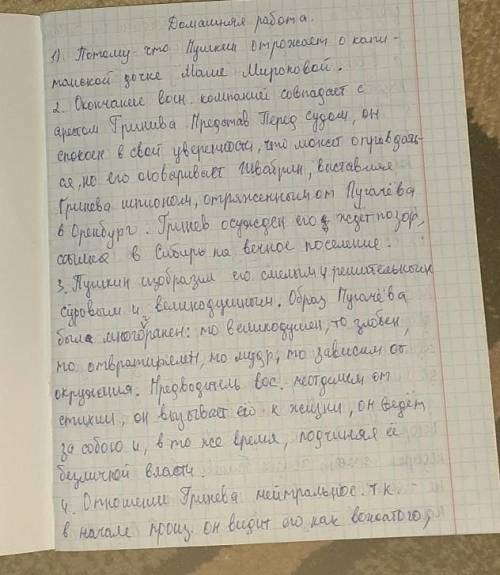 Домашняя работа.
1) Потому что Пушкин отрожает о капи-
танской дочке Маше Мироновой.
2. Окончание воен. компаний совпадает с
арестом Гринива. Представ Перед судом, он
спокоен в свой уверенности, что может оправдать-
ся, но его оговаривает Швабрин, выставляя
Гринева шпионом, отряженным от Пугачёва
в Оренбург. Гринев осужден его ждет позор,
ссылка в Сибирь на вечное поселение.
3. Пушкин изобразил его смелым решительным
суровым и великодушным. Образ Пугачёва
был многогранен: то великодушен, то злобен,
то отвратителен, то мудр, то зависим от
окружения. Предводитель вос. неотделим от
стихии, он вызывает его к жизни, он ведёт
за собою и, в то же время, подчиняя её
безличной власти.
4. Отношении Гринева нейтральное. т.к.
в начале произ. он видит его как вожатого,